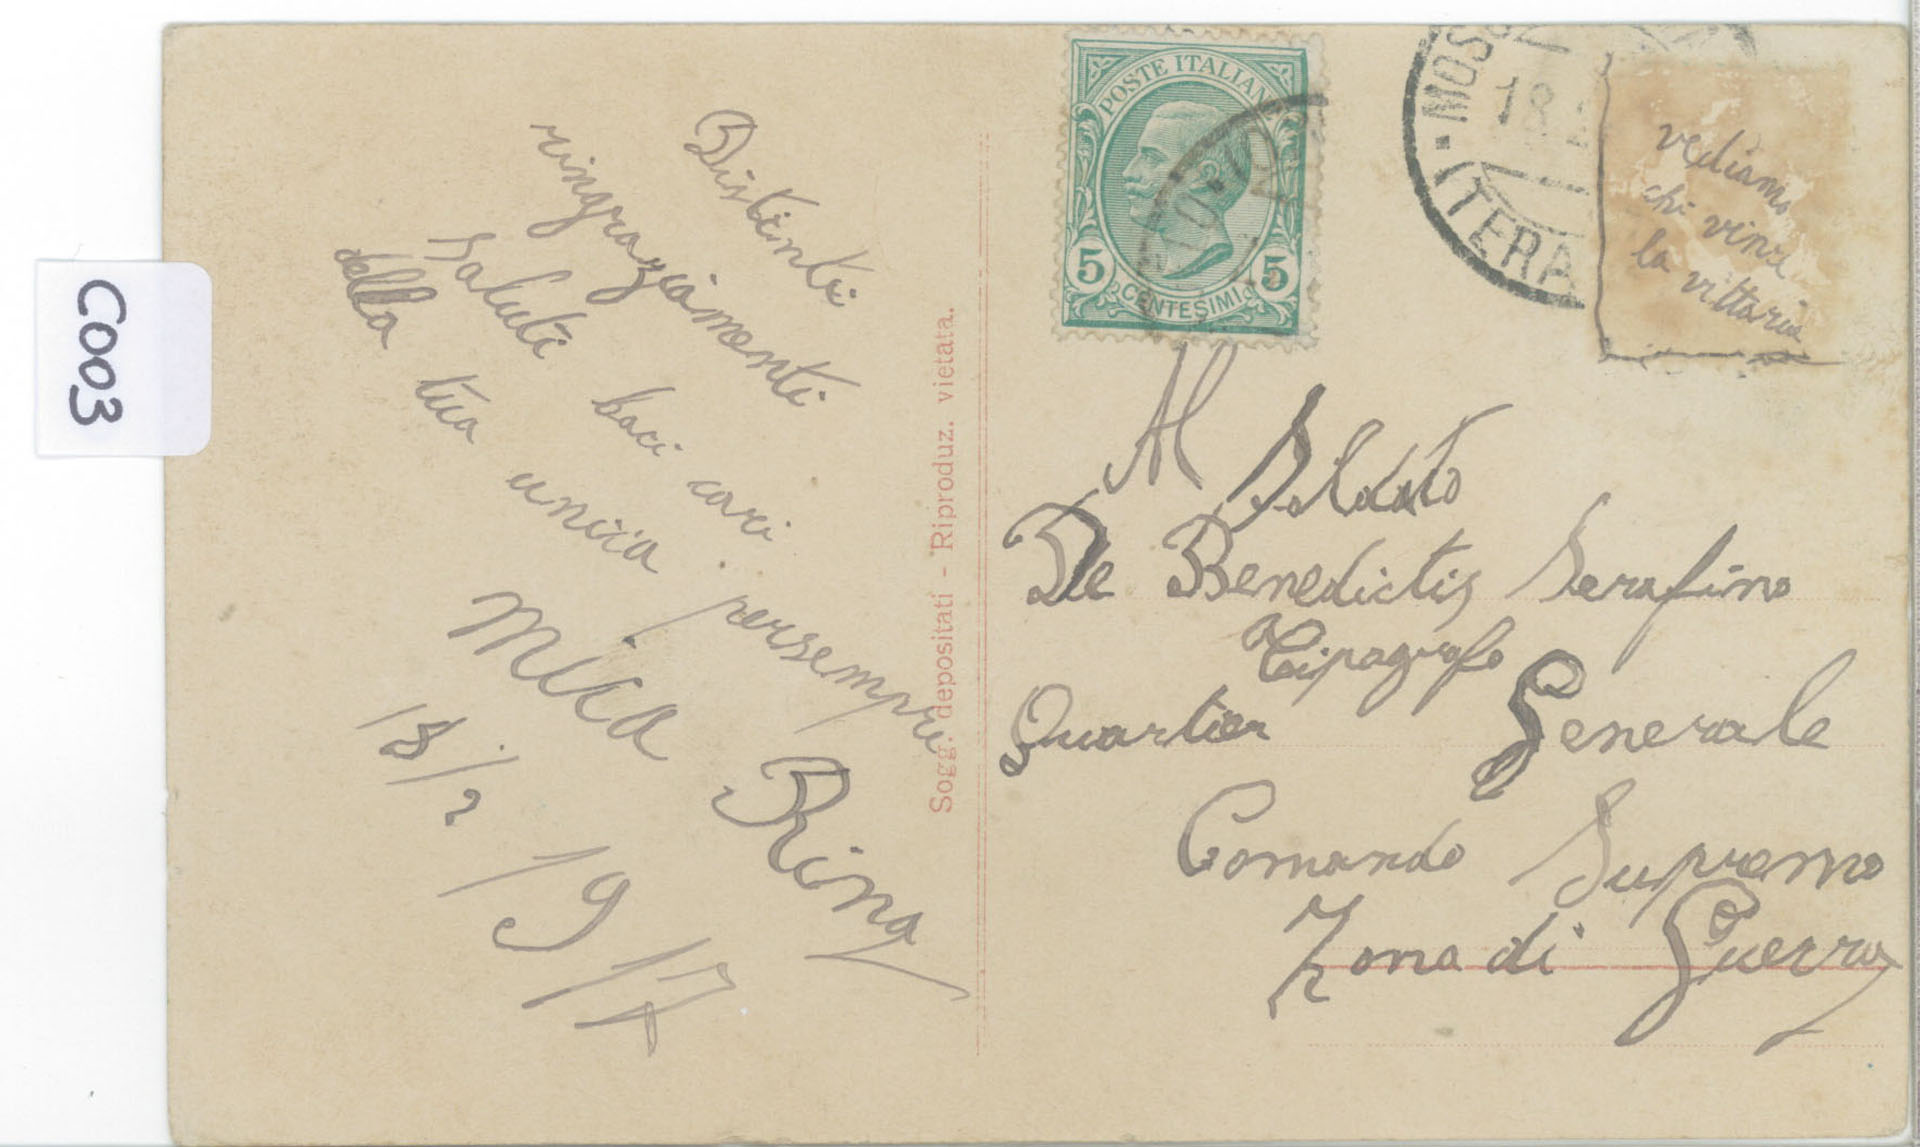 C003
Distinti
ringraziamenti
saluti baci cari
della tua unica
persempre
Mica Rina
18/2
1917
Sogg. depositati - Riproduz. vietata.
POSTE ITALIANE
5 5
CENTESIMI
MOS
18.2
(TERA
vediamo
chi vince
la vittoria
Al Soldato
De Benedictis Serafino
Tipagrafo
Quartier Generale
Comando Supremo
Zona di Guerra